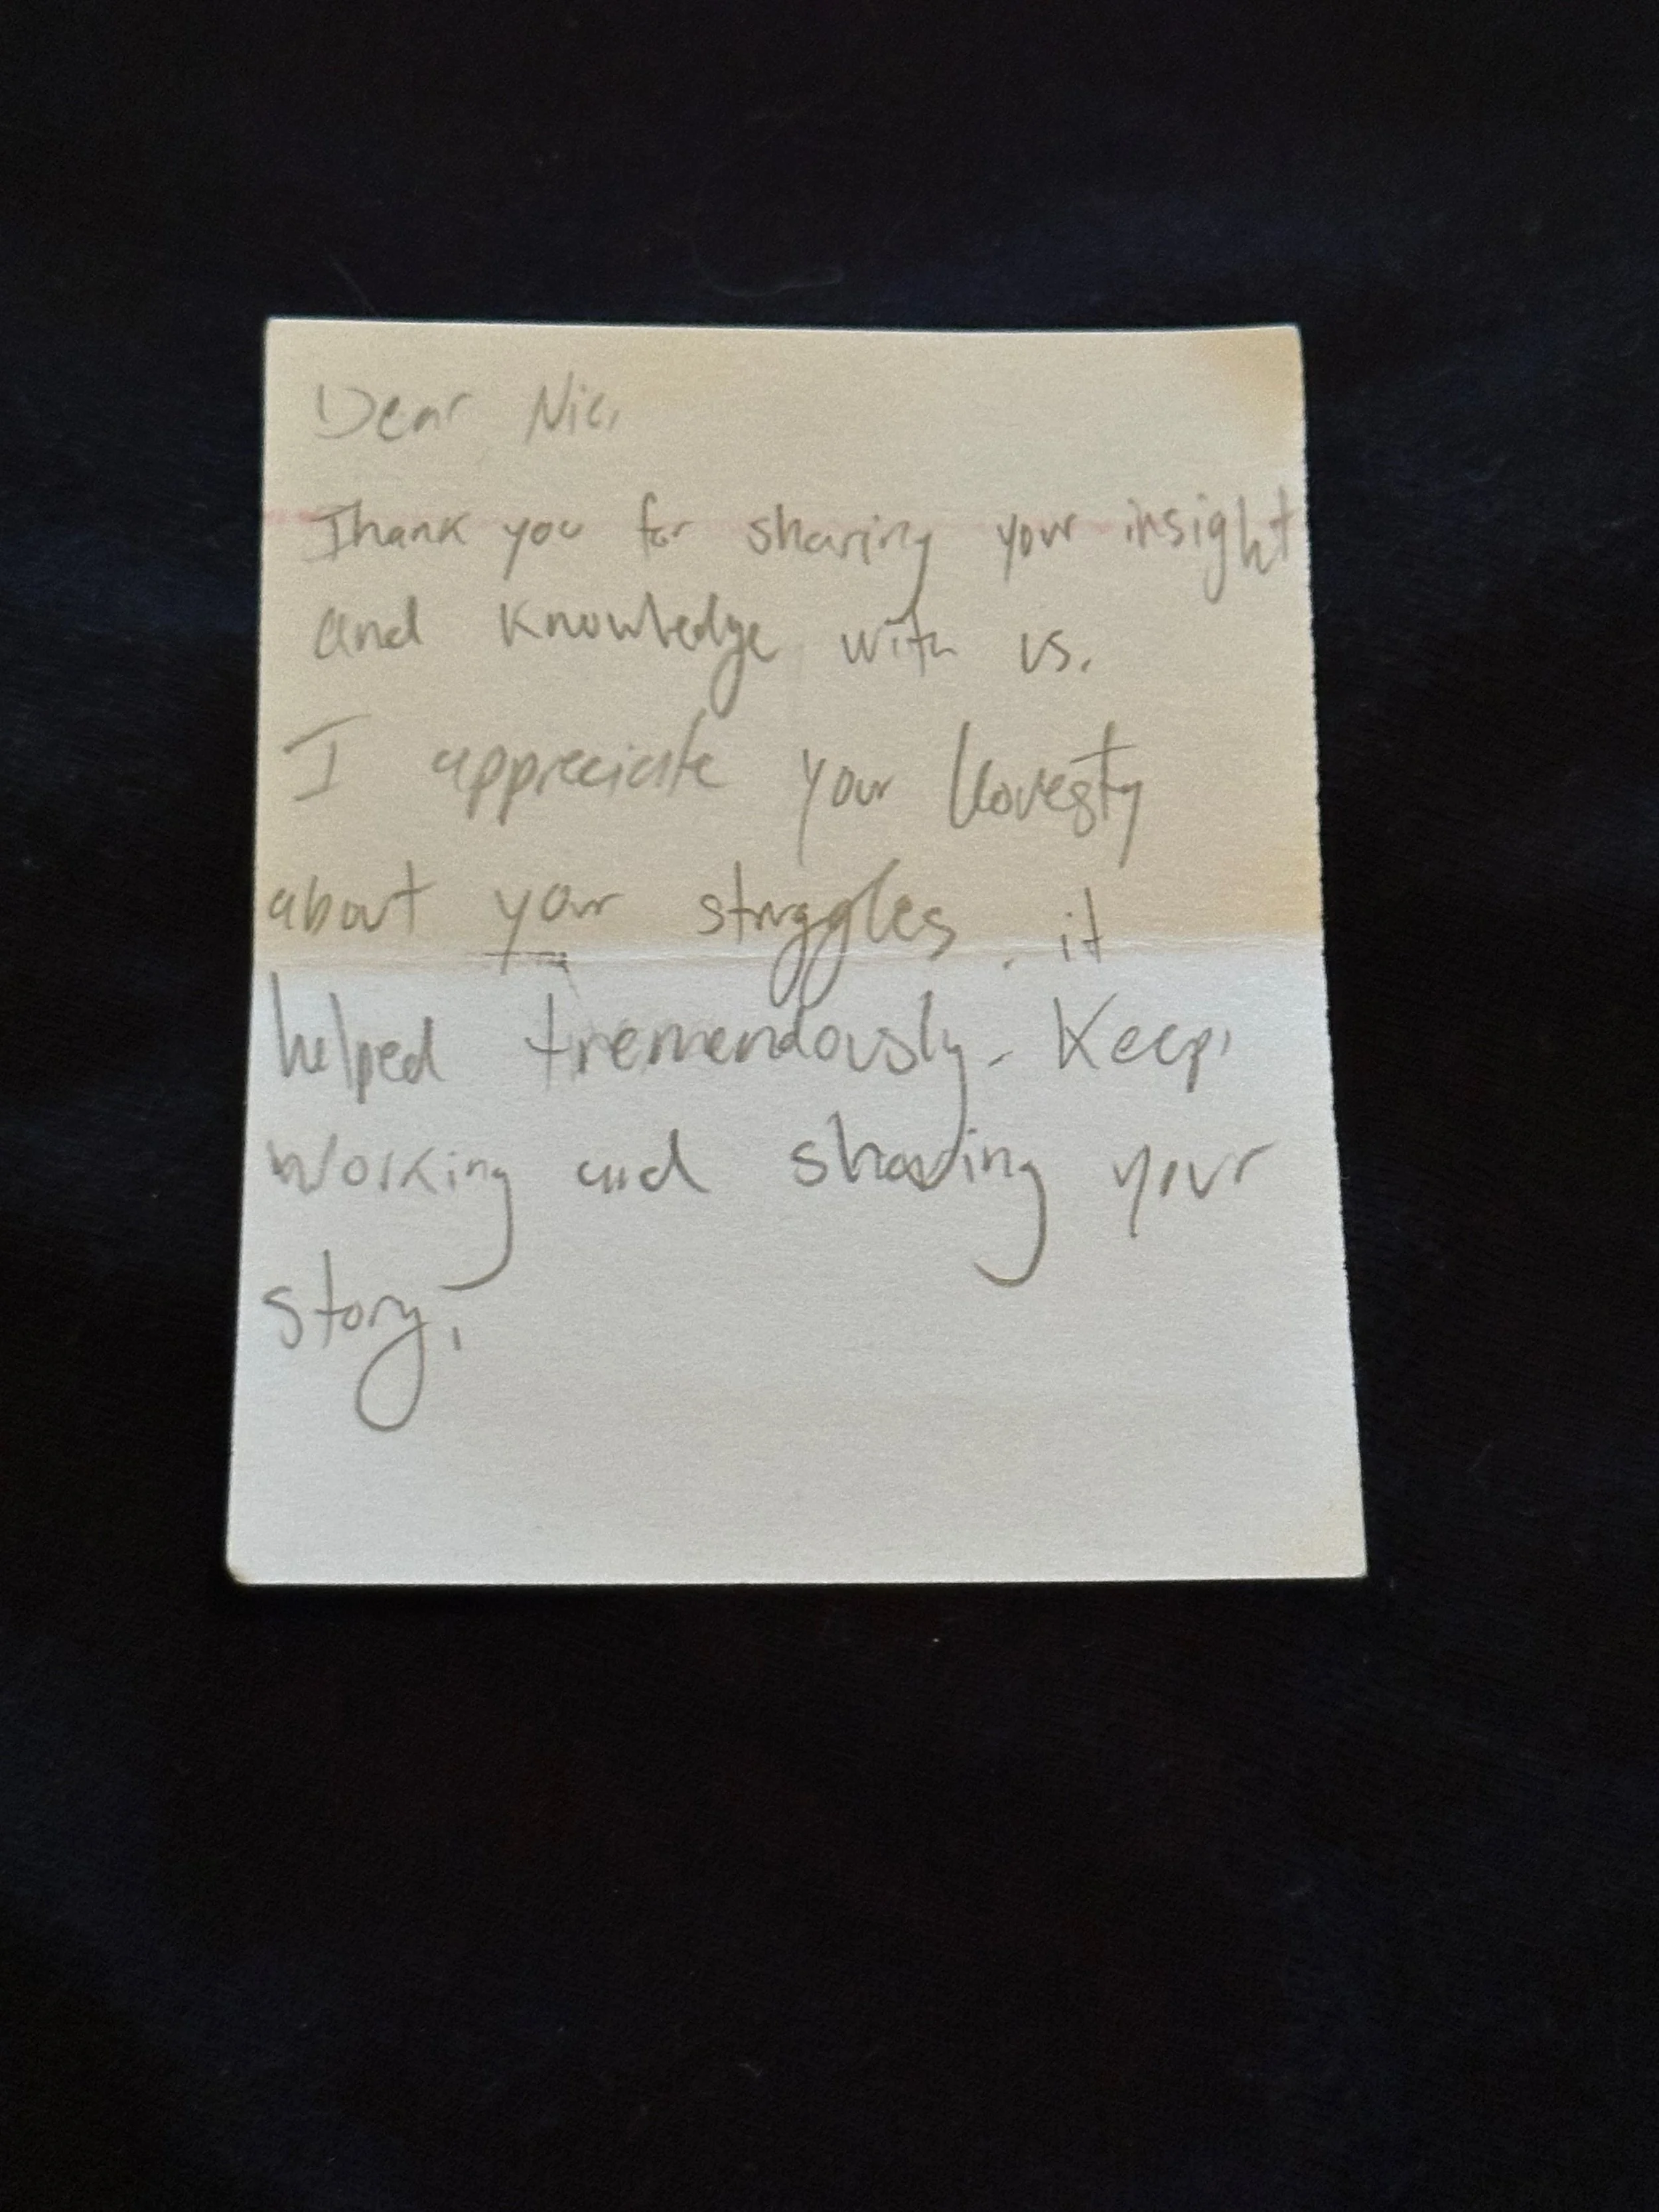 Dear Nic,
Thank you for sharing your insight
and knowledge with us.
I appreciate your honesty
about your struggles. it
helped tremendously. Keep
working and sharing your
story,